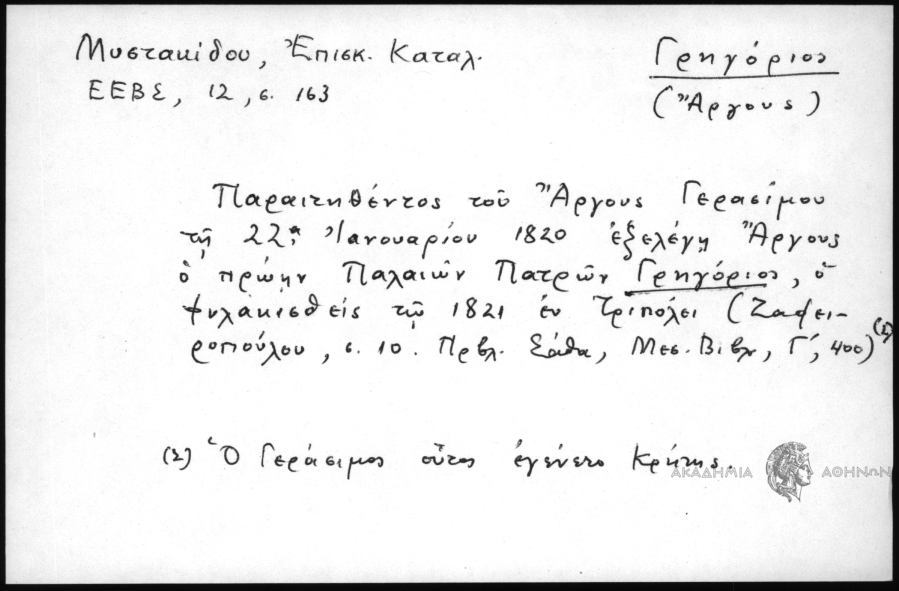 Μυστακίδου, Ἐπισκ. Καταλ.
ΕΕΒΣ, 12, σ. 163
Γρηγόριος
(Ἄργους)
Παραιτηθέντος τοῦ Ἄργους Γερασίμου
τῇ 22ᾳ Ἰανουαρίου 1820 ἐξελέγη Ἄργους
ὁ πρώην Παλαιῶν Πατρῶν Γρηγόριος, ὁ
φυλακισθεὶς τῷ 1821 ἐν Τριπόλει (Ζαφει-
ροπούλου, σ. 10. Πρβλ. Σάθα, Μεσ. Βιβλ, Γ΄, 400)(2)
(2) Ὁ Γεράσιμος οὗτος ἐγένετο Κρήτης.
ΑΚΑΔΗΜΙΑ ΑΘΗΝΩΝ